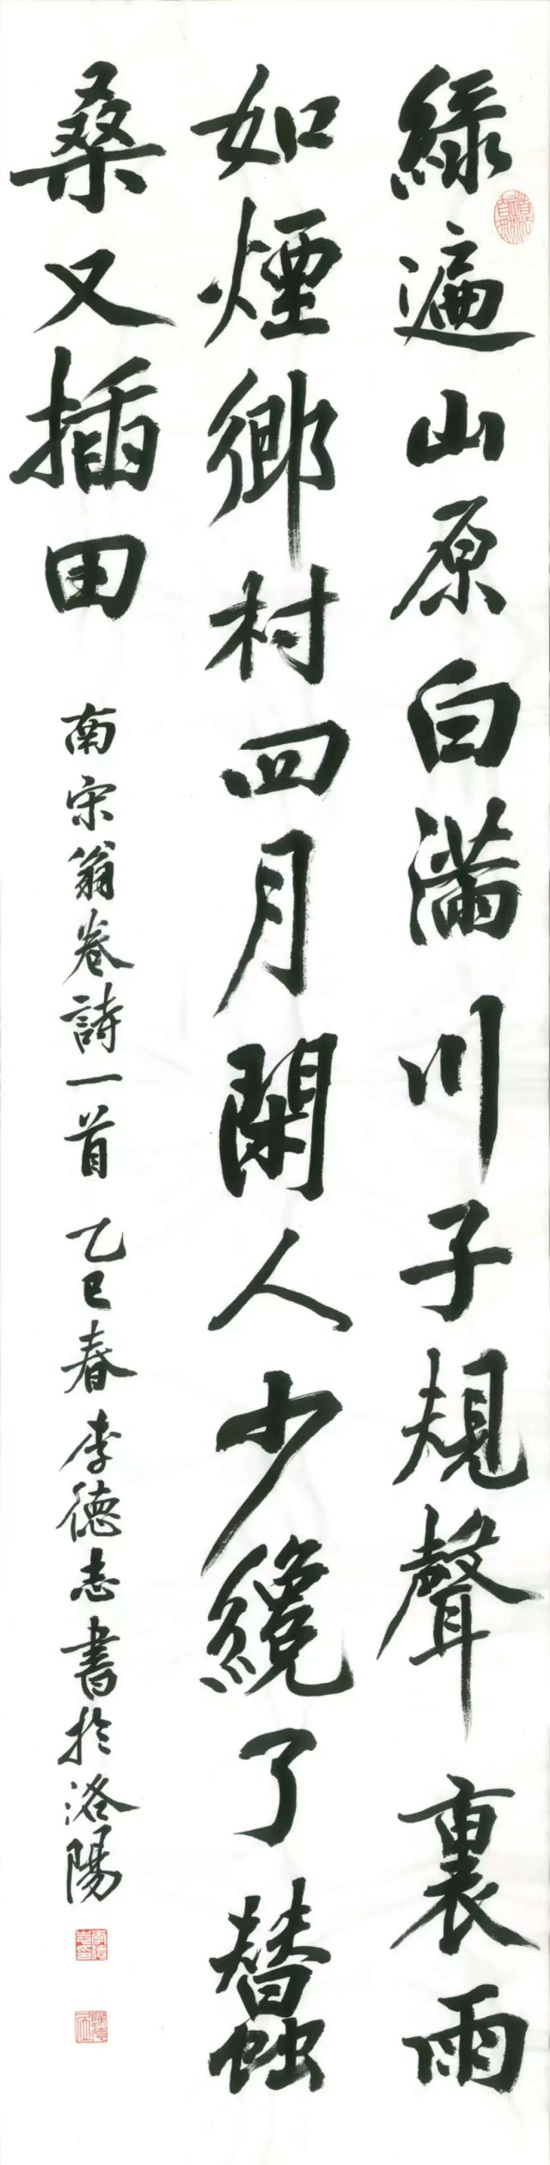 綠遍山原白滿川子規聲裏雨
如煙鄉村四月閑人少纔了蠶
桑又插田
南宋翁卷詩一首 乙巳春李德志書於洛陽